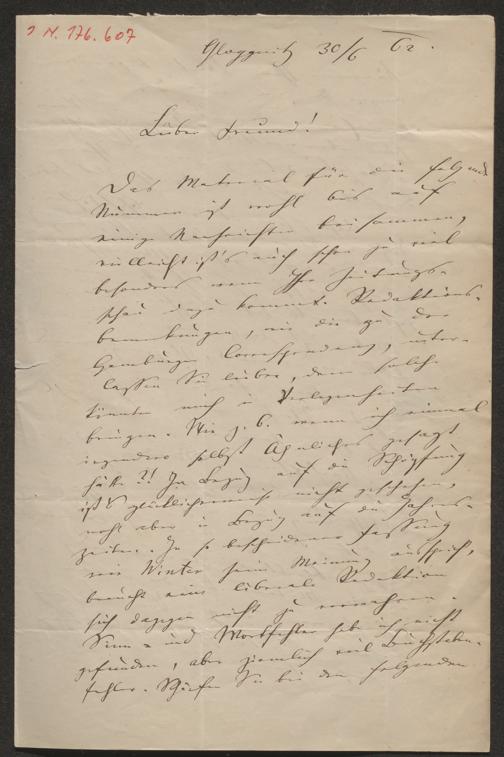 J.N. 176.607
Gloggnitz 30/6 62.
Lieber Freund!
Das Material für die folgende
Nummer ist wohl bis auf
einige Nachrichten beisammen,
vielleicht ist's auch schon zu viel
besonders wenn Ihre Zeitungs-
schau dazu kommt. Redaktions-
bemerkungen, wie die zu der
Hamburger Correspondenz, unter-
lassen Sie lieber, denn solche
könnten mich in Verlegenheiten
bringen. Wie z. B. wenn ich einmal
irgendwo selbst Ähnliches gesagt
hätte?! In Bezug auf die Schöpfung
ist's glücklicherweise nicht geschehen,
wohl aber in Bezug auf die Jahres-
zeiten. In so bescheidener Fassung
wie Winter seine Meinung ausspricht,
braucht eine liberale Redaktion
sich dagegen nicht zu verwahren.
Sinn- und Wortfehler hab ich nicht
gefunden, aber ziemlich viel Buchstaben-
fehler. Schärfen Sie bei den folgenden